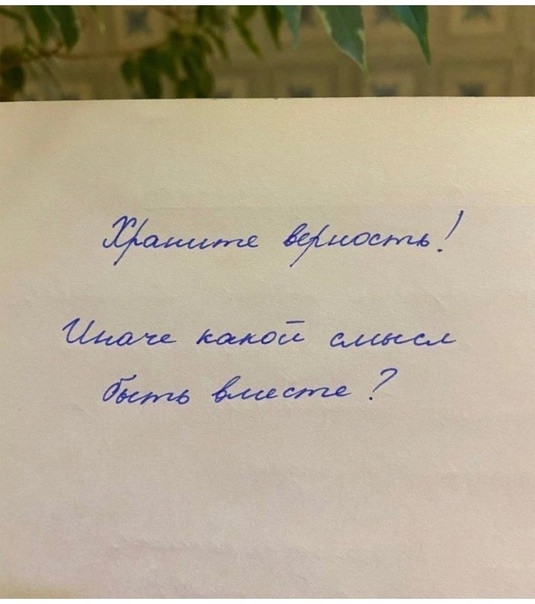 Храните верность!
Иначе какой смысл
быть вместе?